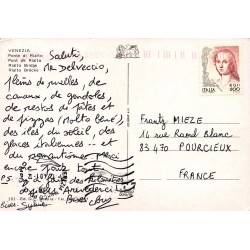 VENEZIA
Ponte di Rialto
Pont de Rialto
Rialto Bridge
Rialto Brücke
Saluti,
Me Delveccio,
Pleins de ruelles, de
canaux, de gondoles,
de restos de pâtes et
de pizzas (molto bene),
des iles, du soleil, des
glaces italiennes.. et
du romantisme merci
encore pour tout
P.S.
Arrivederci
Bises
ITALIA
800
Frantz MIEZE
14 rue Raoul Blanc
83 470 POURCIEUX
FRANCE